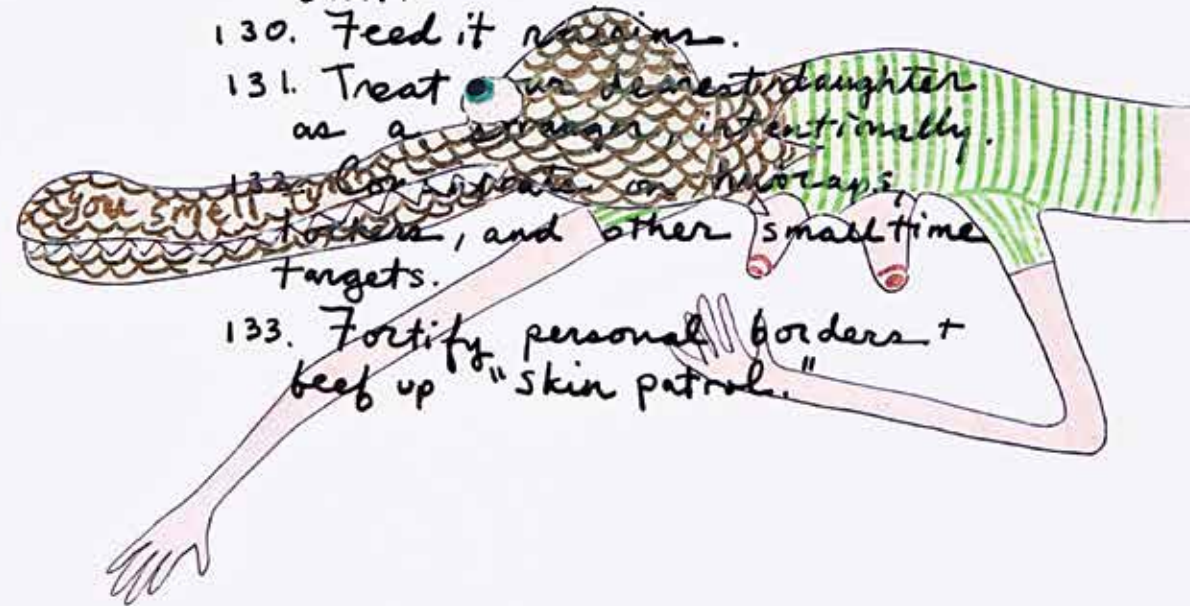 130. Feed it raisins.
131. Treat our dearest daughter
as a stranger, intentionally.
132. on
you smell
and other small time
targets.
133. Fortify personal borders +
beef up "skin patrol."